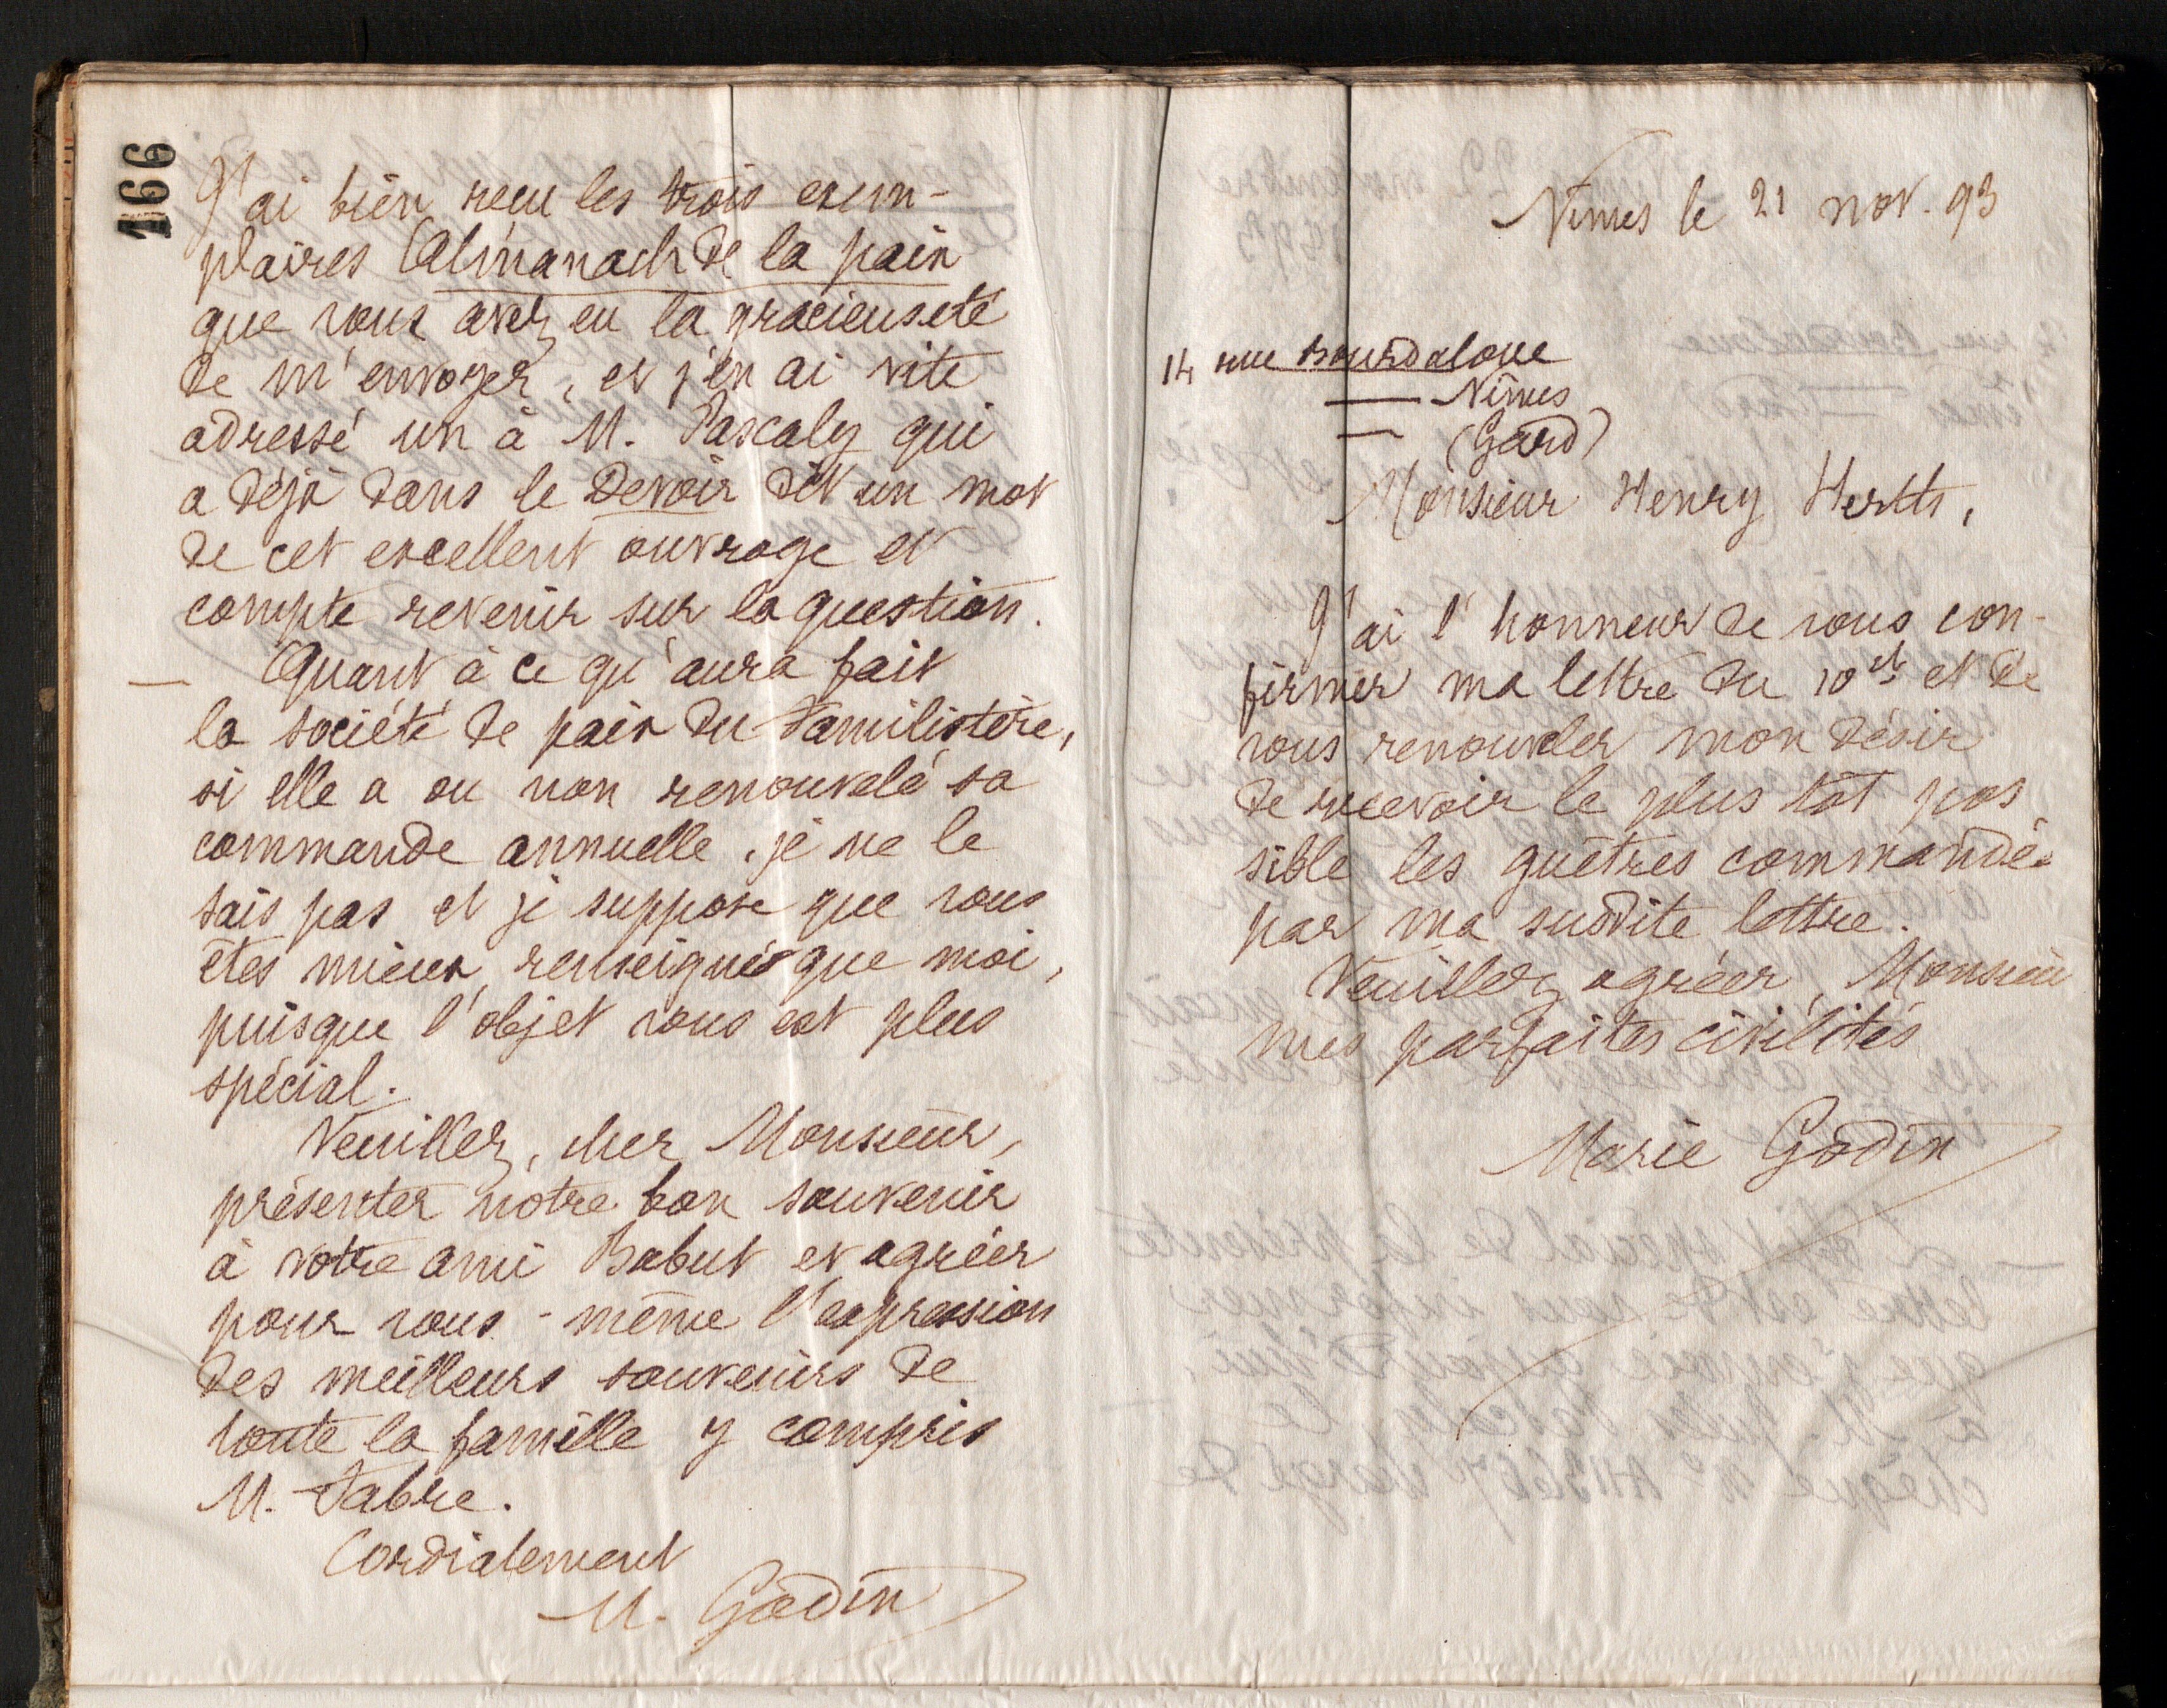 166
J'ai bien reçu les trois exem-
plaires Almanach de la paix
que vous avez eu la gracieuseté
de m'envoyer, et j'en ai vite
adressé un à M. Pascaly qui
a déjà dans le Devoir dit un mot
de cet excellent ouvrage et
compte revenir sur la question.
— Quant à ce qu'aura fait
la société de paix du Familistère,
si elle a ou non renouvelé sa
commande annuelle, je ne le
sais pas et je suppose que vous
êtes mieux renseigné que moi,
puisque l'objet vous est plus
spécial.
Veuillez, cher Monsieur,
présenter notre bon souvenir
à votre ami Babut et agréer
pour vous-même l'expression
des meilleurs souvenirs de
toute la famille y compris
M. Fabre.
Cordialement
M. Godin
Nimes le 21 nov. 93
14 rue Bourdaloue
— Nîmes
— (Gard)
Monsieur Henry Herth,
J'ai l'honneur de vous con-
firmer ma lettre du 10 et de
vous renouveler mon désir
de recevoir le plus tôt pos
sible les guêtres commandées
par ma susdite lettre.
Veuillez agréer, Monsieur
mes parfaites civilités
Marie Godin